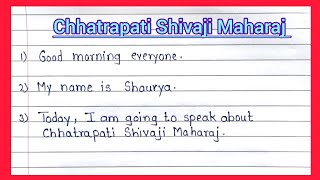 Chhatrapati Shivaji Maharaj
1) Good morning everyone.
2) My name is Shaurya.
3) Today, I am going to speak about
Chhatrapati Shivaji Maharaj.